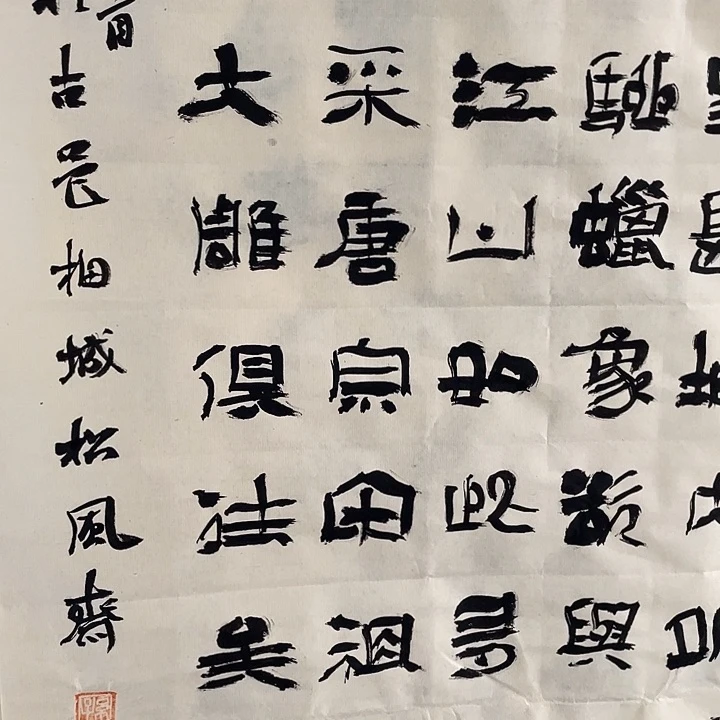 馳蠟象欲與
江山如此多
采唐宗宋祖
大雕俱往矣
古邑相城松風齋